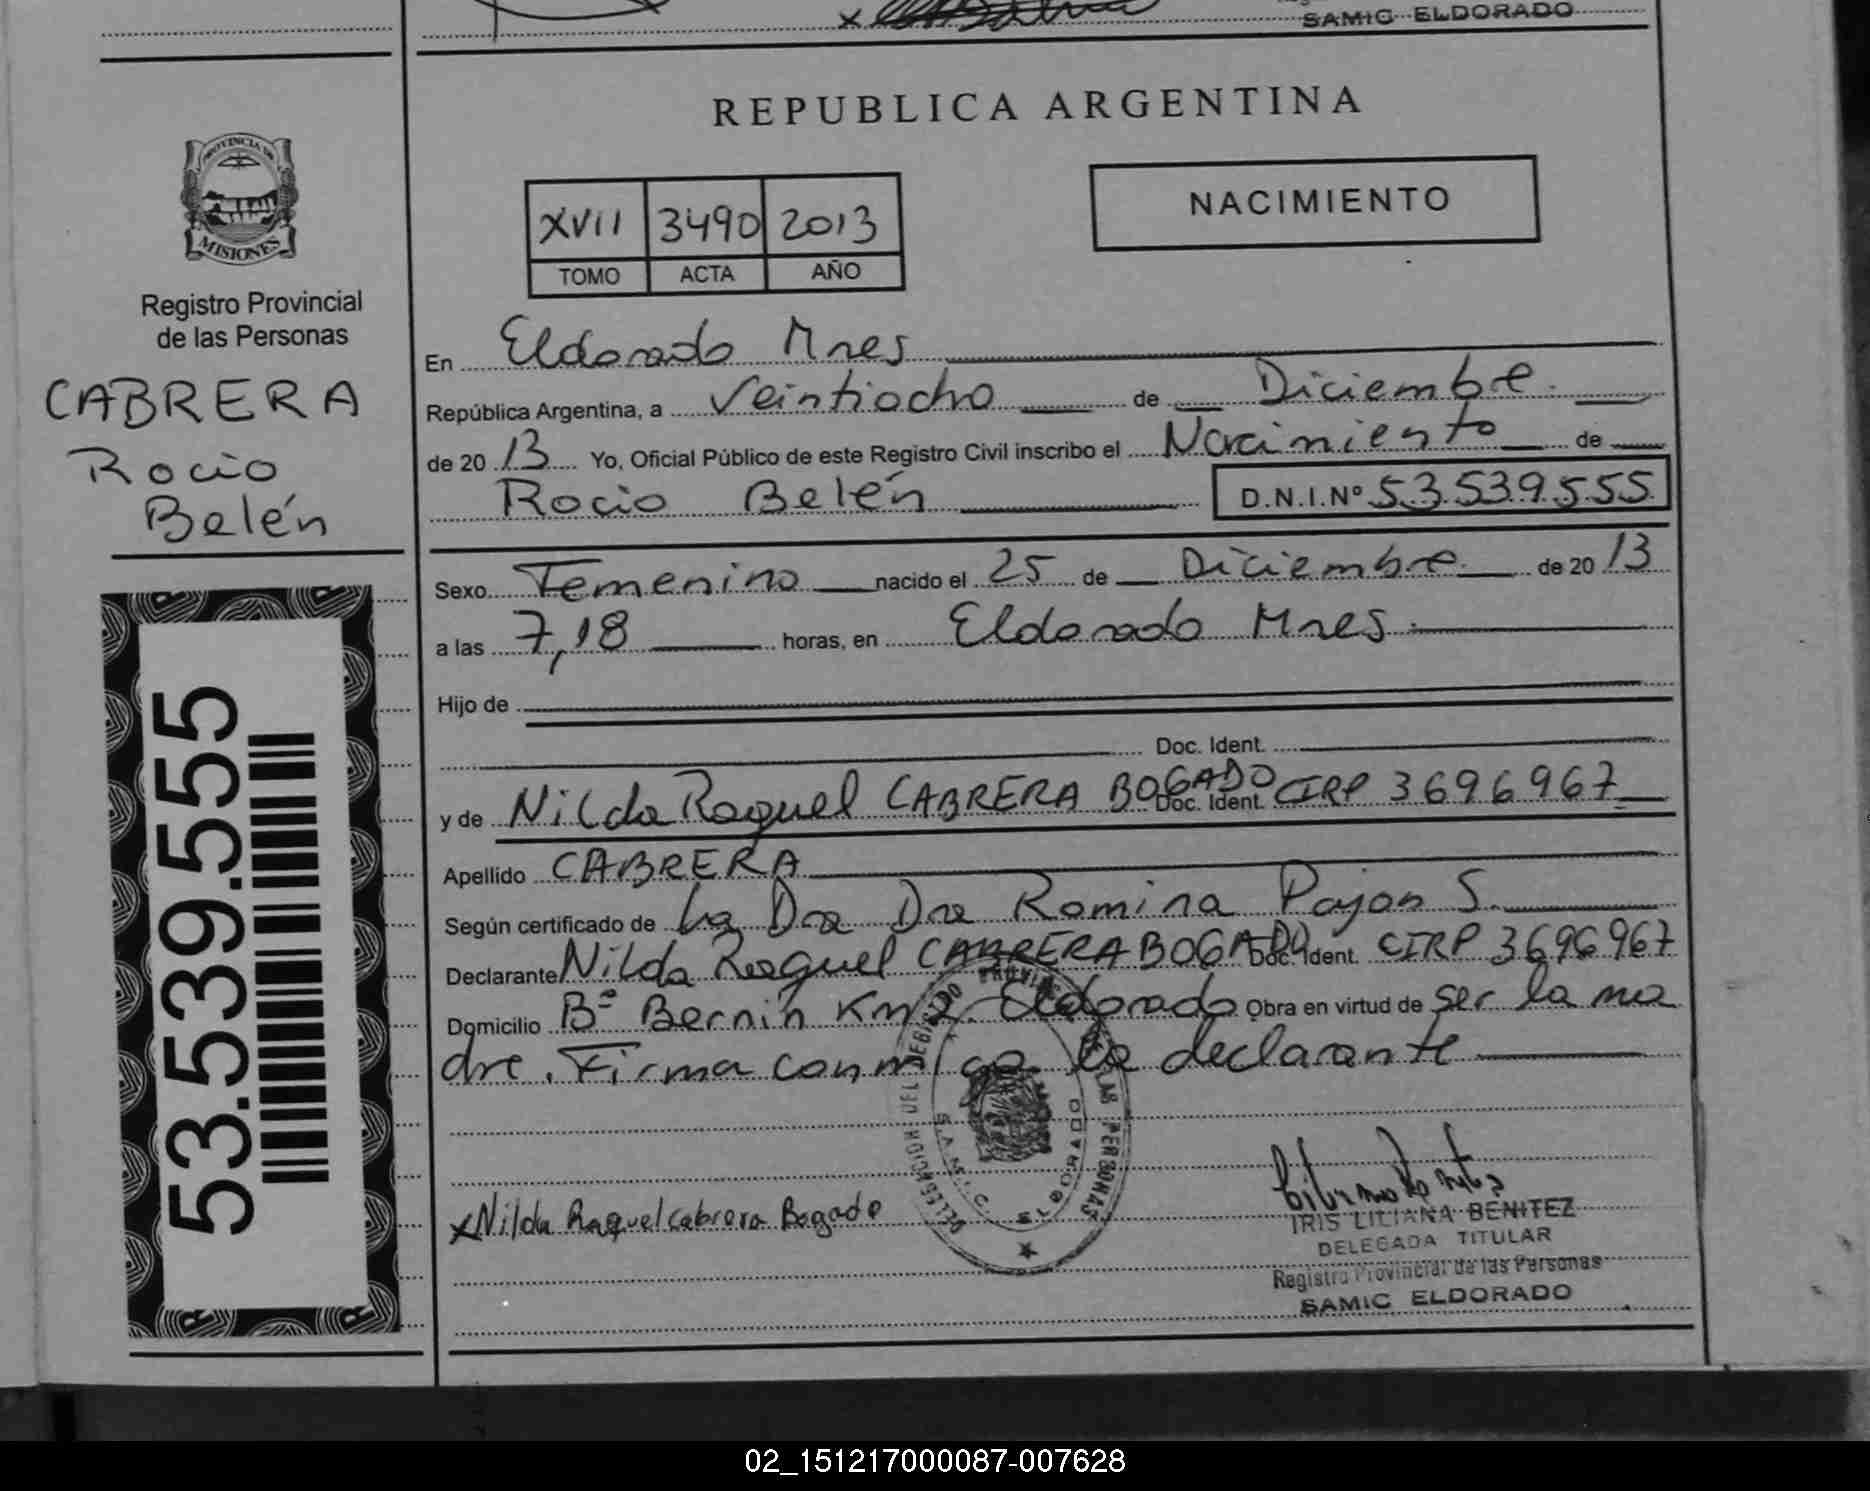 SAMIC ELDORADO
PROVINCIA DE
MISIONES
Registro Provincial
de las Personas
CABRERA
Rocio
Belén
53.539.555
REPUBLICA ARGENTINA
XVII 3490 2013
TOMO ACTA AÑO
NACIMIENTO
En Eldorado Mnes
República Argentina, a Veintiocho de Diciembre
de 20 13 Yo, Oficial Público de este Registro Civil inscribo el Nacimiento de
Rocio Belén D.N.I.Nº 53539555
Sexo Femenino nacido el 25 de Diciembre de 20 13
a las 7,18 horas, en Eldorado Mnes
Hijo de
Doc. Ident.
y de Nilda Raquel CABRERA BOGADO Doc. Ident. CIRP 3696967
Apellido CABRERA
Según certificado de La Dra Dra Romina Payon S.
Declarante Nilda Raquel CABRERA BOGADO Doc. Ident. CIRP 3696967
Domicilio Bº Bernin Km 2. Eldorado Obra en virtud de ser la ma
dre. Firma conmigo la declarante
x Nilda Raquel Cabrera Bogado
DE LAS PERSONAS
S.A.M.I.C. ELDORADO
IRIS LILIANA BENITEZ
DELEGADA TITULAR
Registro Provincial de las Personas
SAMIC ELDORADO
02_151217000087-007628